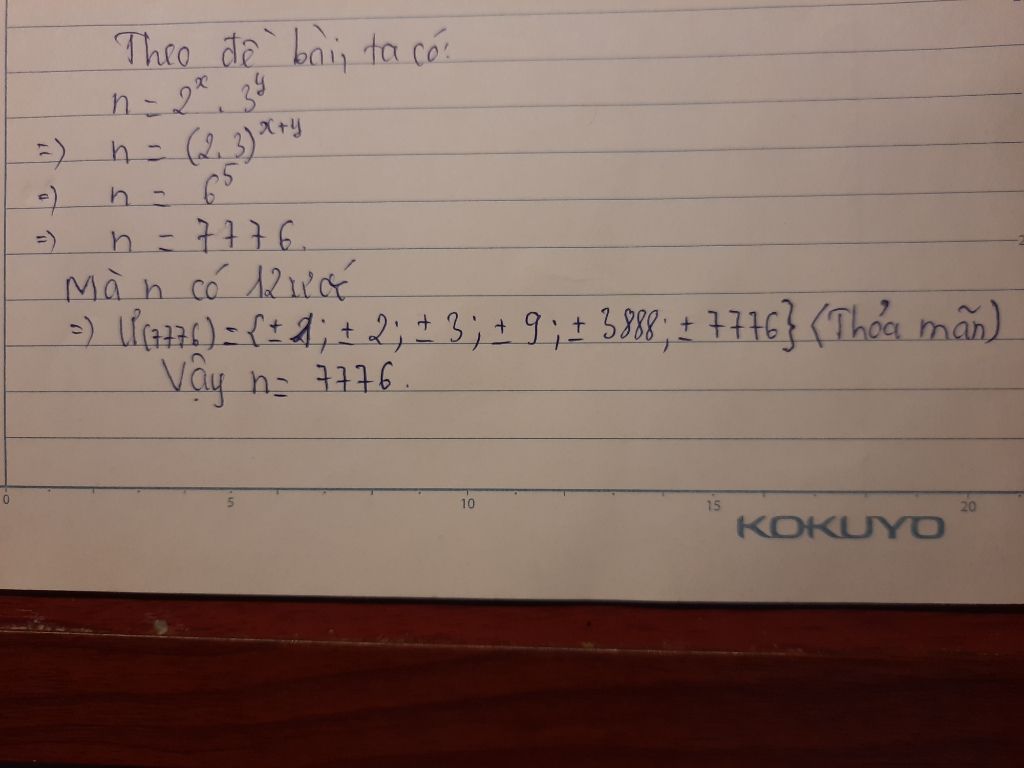 Theo đề bài, ta có:
n = 2^x . 3^y
=) n = (2.3)^{x+y}
=) n = 6^5
=) n = 7776.
Mà n có 12 ước
=) Ư(7776) = {± 1; ± 2; ± 3; ± 9; ± 3888; ± 7776} (Thỏa mãn)
Vậy n = 7776.
0 5 10 15 20
KOKUYO